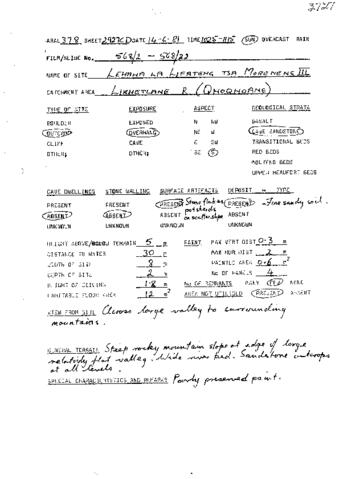 3727
AREA 378 SHEET 2927CD DATE 14-6-81 TIME 1025-1115 SUN OVERCAST RAIN
FILM/SLIDE NO. 568/2 - 568/22
NAME OF SITE LEHAHA LA LIFATENG TSA MORENENG III
CATCHMENT AREA LIKHETLANE R. (QHOQHOANE)
TYPE OF SITE EXPOSURE ASPECT GEOLOGICAL STRATA
BOULDER EXPOSED N NW BASALT
OUTCROP OVERHANG NE W CAVE SANDSTONE
CLIFF CAVE E SW TRANSITIONAL BEDS
OTHER: OTHER: SE S RED BEDS
MOLTENO BEDS
UPPER BEAUFORT BEDS
CAVE DWELLINGS STONE WALLING SURFACE ARTEFACTS DEPOSIT - TYPE
PRESENT PRESENT PRESENT Stone flakes, potsherds on scatterslope PRESENT - Fine sandy soil.
ABSENT ABSENT ABSENT ABSENT
UNKNOWN UNKNOWN UNKNOWN UNKNOWN
HEIGHT ABOVE/BELOW TERRAIN 5 m PAINT MAX VERT DIST 0-3 m
DISTANCE TO WATER 30 m MAX HOR DIST 2 m
WIDTH OF SITE 8 m PAINTED AREA 0-6 m²
DEPTH OF SITE 2 m NO OF PANELS 4
HEIGHT OF CEILING 1-8 m No OF REMNANTS MANY FEW NONE
HABITABLE FLOOR AREA 12 m² AREA NOT UTILISED PRESENT ABSENT
VIEW FROM SITE Across large valley to surrounding
mountains.
GENERAL TERRAIN Steep rocky mountain slope at edge of large
relatively flat valley. Wide river bed. Sandstone outcrops
at all levels.
SPECIAL CHARACTERISTICS AND REMARKS Poorly preserved paint.